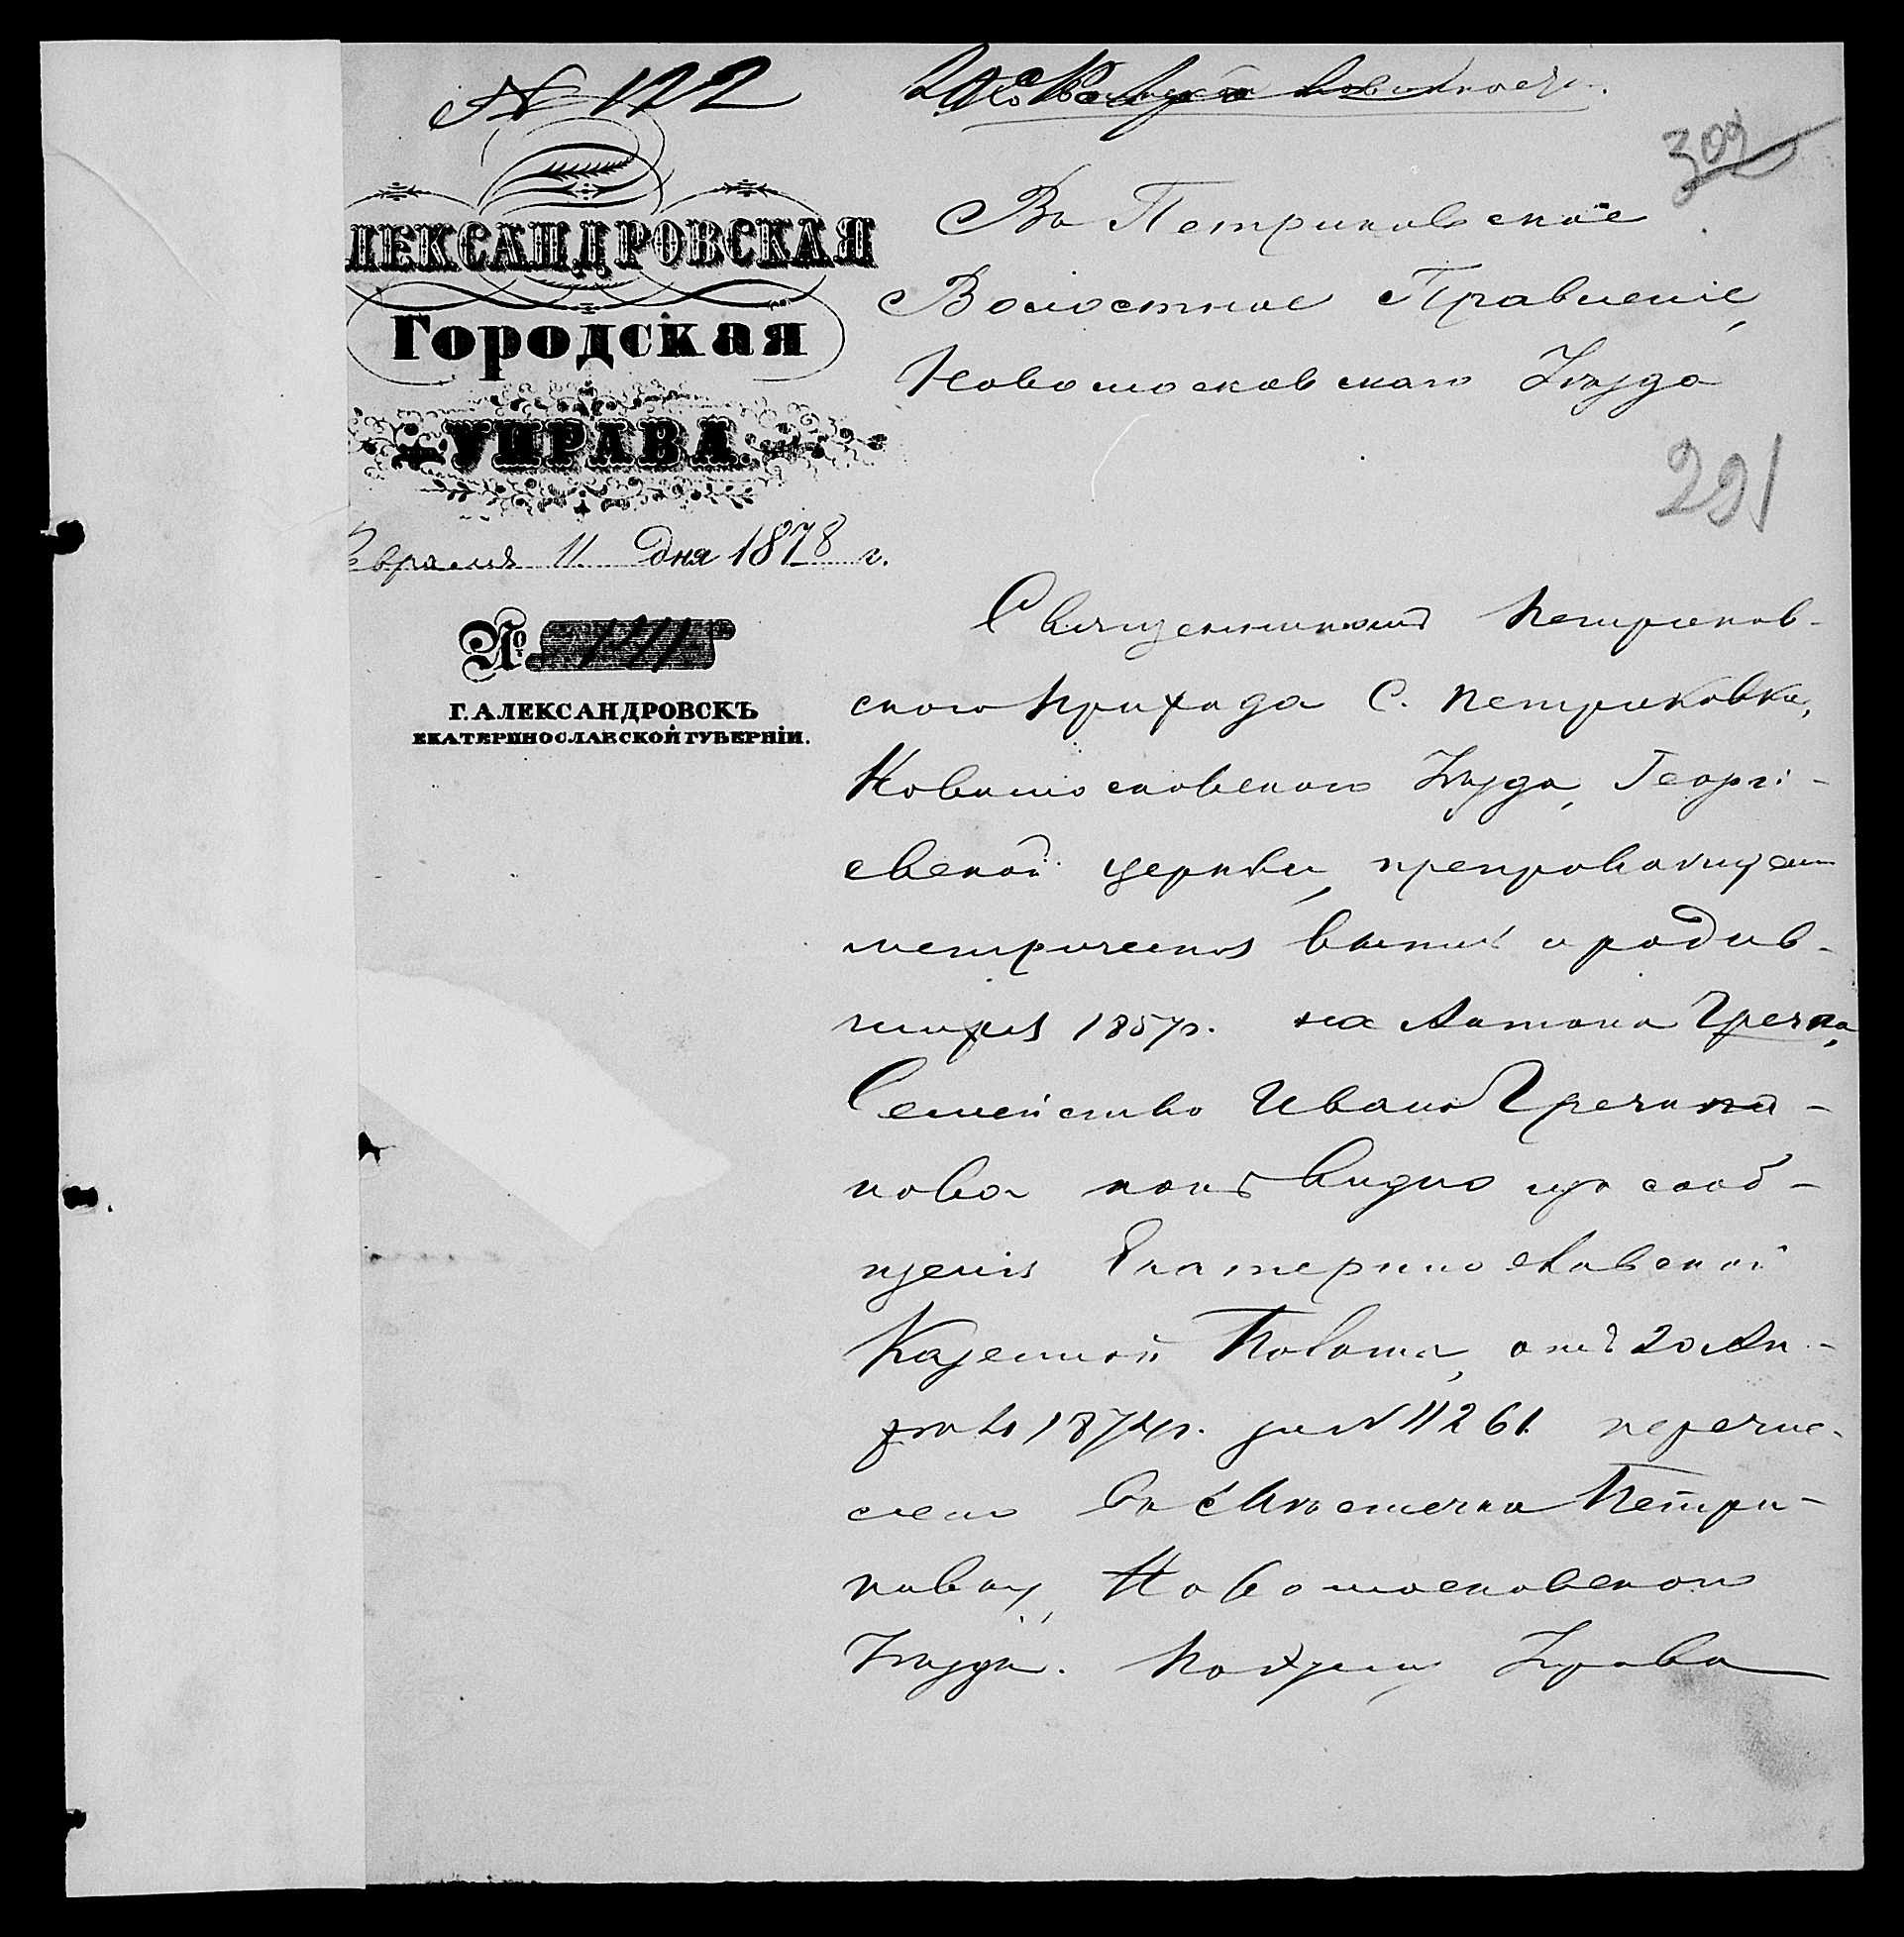 № 122
302
АЛЕКСАНДРОВСКАЯ
Городская
УПРАВА
Февраля 11 дня 1878 г.
№ 1211
Г. АЛЕКСАНДРОВСКЪ
ЕКАТЕРИНОСЛАВСКОЙ ГУБЕРНІИ.
Въ Петриковское
Волостное Правленіе,
Новомосковскаго Уѣзда
291
Священникомъ Петриков-
скаго прихода С. Петриковка,
Новомосковскаго Уѣзда, Георгі-
евской церкви, препровожденъ
метрическая выпись о родив-
шихся 1857 г. на Антона Гречка,
Семейство Ивана Гречка-
нова какъ видно изъ сооб-
щенія Екатеринославской
Казенной Палаты, отъ 20 Ап-
рѣля 1874 г. за № 11261 перечис-
лено въ мѣстечко Петри-
ковку, Новомосковскаго
Уѣзда. Почему Управа